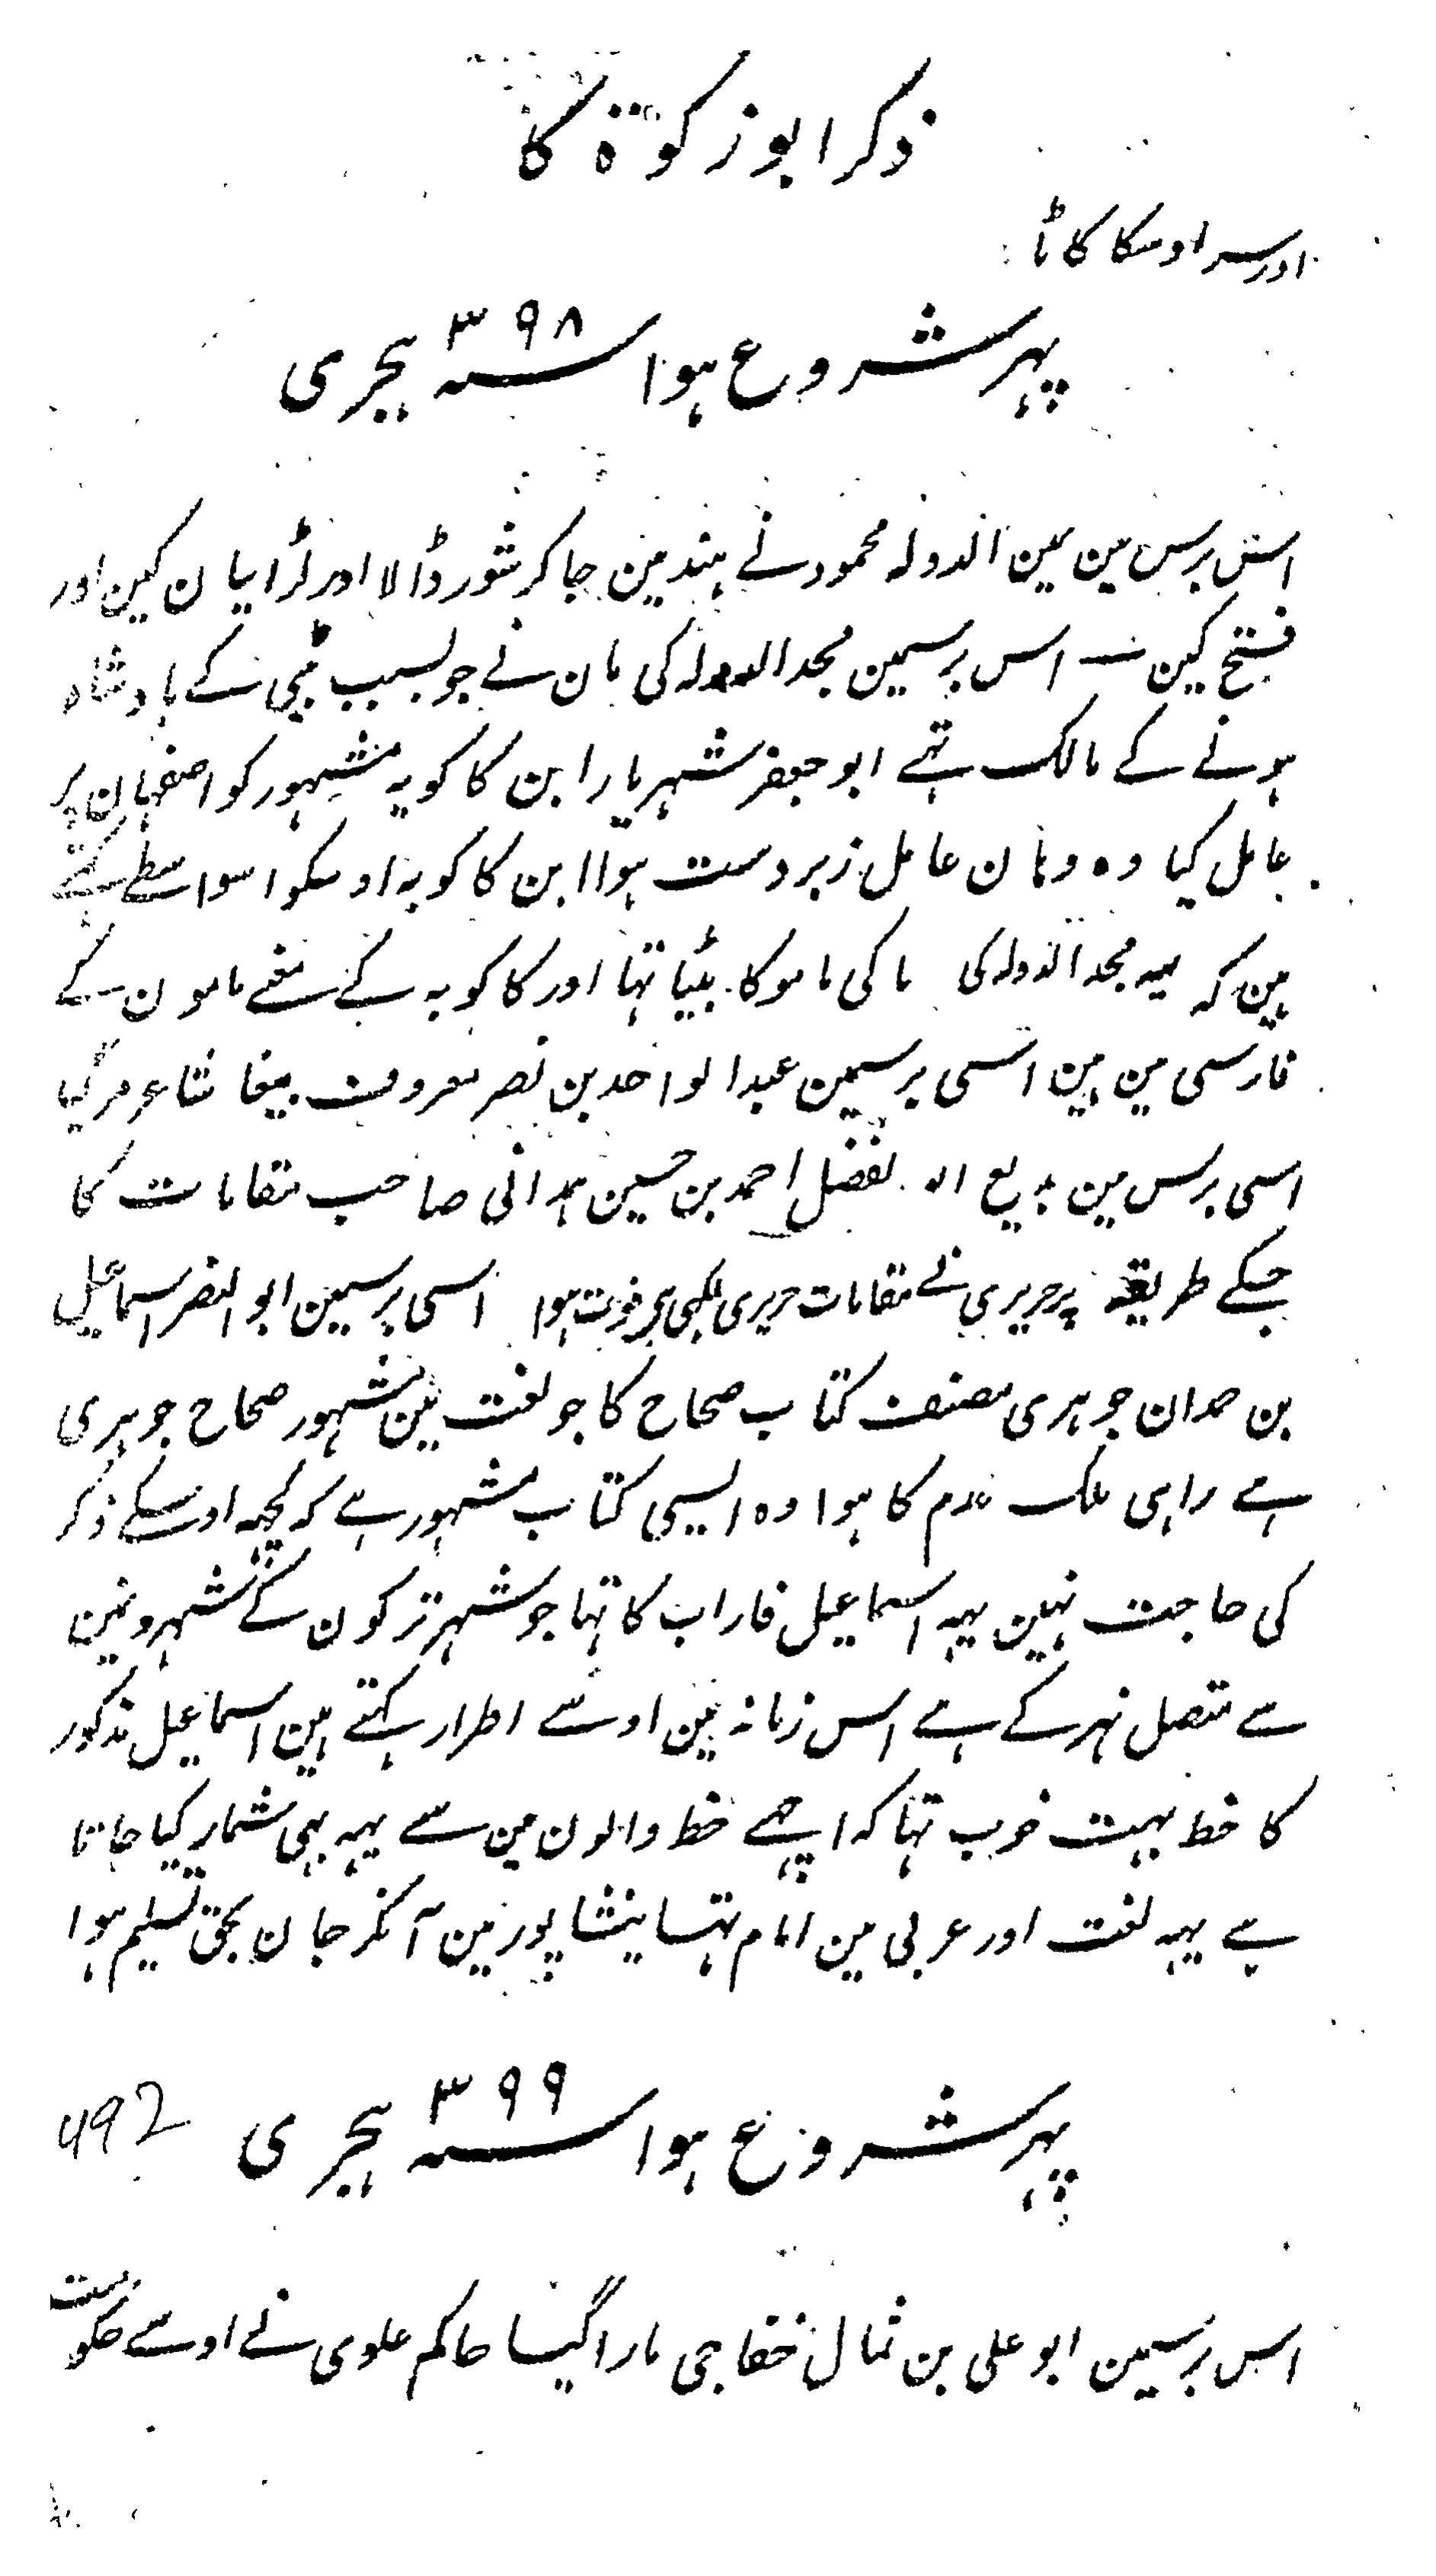 ذکر ابوزکوۃ کا
اور سر اوسکا کاٹا
پہر شروع ہوا سنہ ۳۹۸ ہجری
اس برس مین یمین الدولہ محمود نے ہند مین جا کر شور ڈالا اور لڑایان کین اور
فتح کین اس برسمین مجد الدولہ کی مان نے جو بسبب بیٹی کے بادشاہ
ہونے کے مالک تہے ابو جعفر شہریار ابن کاکویہ مشہور کو اصفہان پر
عامل کیا وہ وہان عامل زبردست ہوا ابن کاکویہ اوسکو اسواسطے کہتے
ہین کہ یہہ مجد الدولہ کی ما کی ماموکا بیٹا تہا اور کاکویہ کے معنے مامون کے
فارسی مین ہین اسی برسمین عبد الواحد بن نصر معروف ببغا شاعر مر گیا
اسی برس مین بدیع الفضل احمد بن حسین ہمدانی صاحب مقامات کا
جسکے طریقہ پر حریری نے مقامات حریری لکہی ہے فوت ہوا اسی برسمین ابو النصر اسماعیل
بن حمدان جوہری مصنف کتاب صحاح کا جو لغت مین مشہور صحاح جوہری
ہے راہی ملک عدم کا ہوا وہ ایسی کتاب مشہور ہے کہ کچہہ اوسکے ذکر
کی حاجت نہین یہہ اسماعیل فاراب کا تہا جو شہر ترکون کے شہرونمین
سے متصل نہر کے ہے اس زمانہ مین اوسے اطرار کہتے ہین اسماعیل مذکور
کا خط بہت خوب تہا کہ اچہے خط والون مین سے یہہ بہی شمار کیا جاتا
ہے یہہ لغت اور عربی مین امام تہا نیشاپور مین آنکر جان بحق تسلیم ہوا
پہر شروع ہوا سنہ ۳۹۹ ہجری
اس برسمین ابو علی بن ثمال خفاجی مارا گیا حاکم علوی نے اوسے حکومت